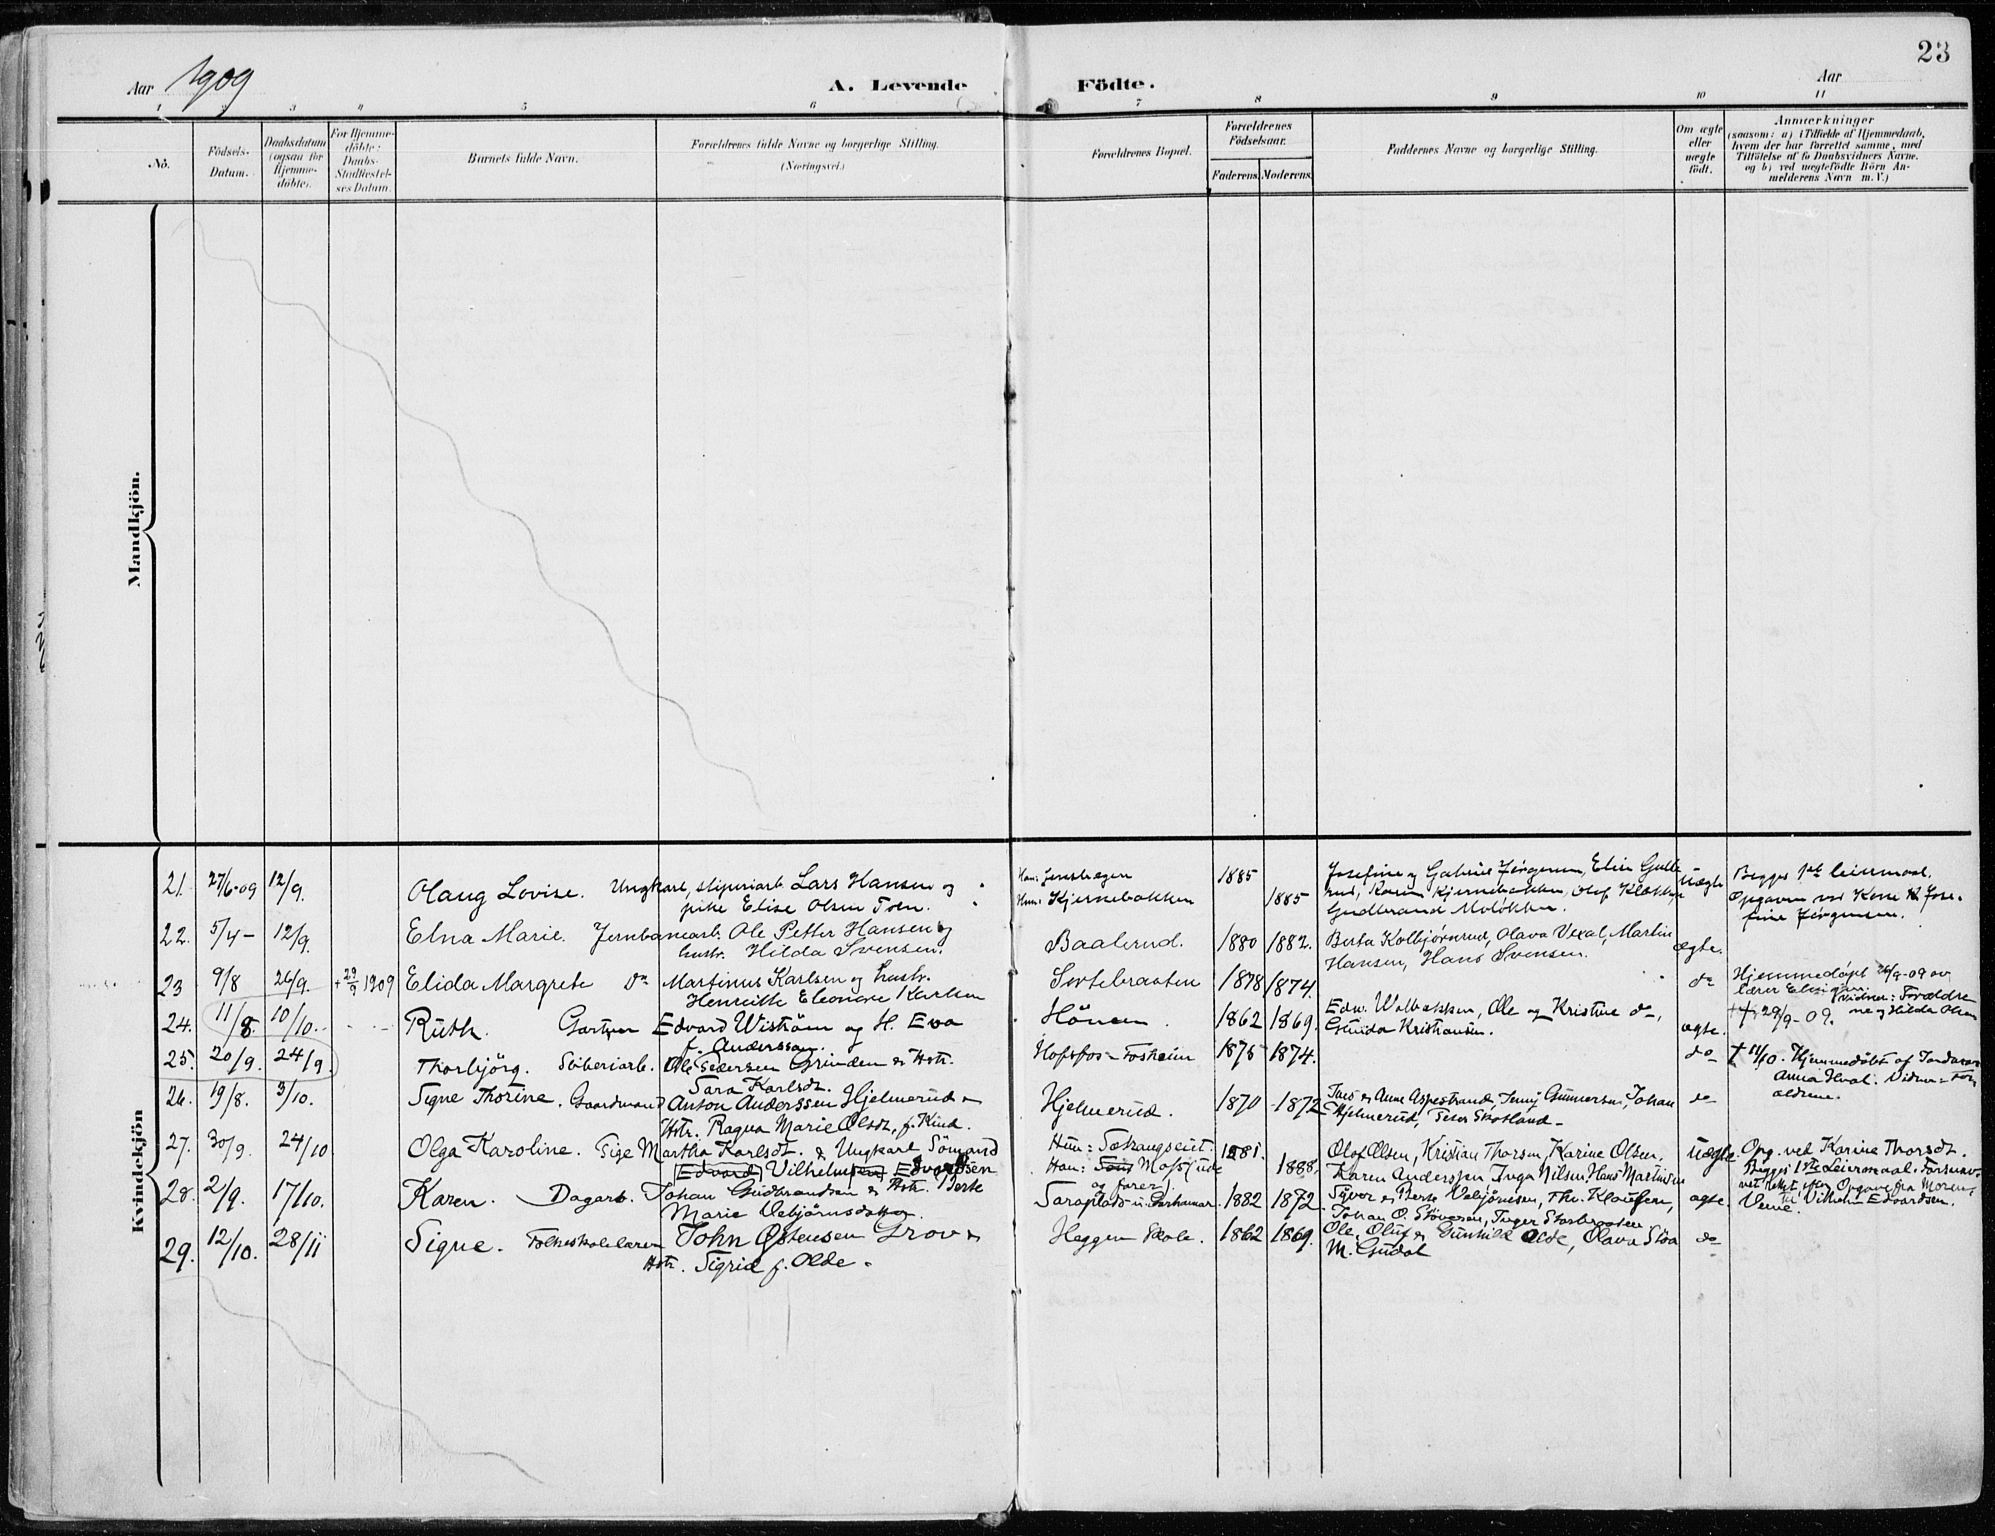 23
Aar 1909 A. Levende Födte. Aar
1 2 3 4 5 6 7 8 9 10 11
No.
Födsels-
Datum.
Daabsdatum
(ogsaa for
Hjemme-
döbte).
For Hjemme-
döbte:
Daabs-
Stadfæstel-
ses Datum.
Barnets fulde Navn.
Forældrenes fulde Navne og borgerlige Stilling.
(Næringsvei.)
Forældrenes Bopæl.
Forældrenes
Födselsaar.
Faderens. Moderens.
Faddernes Navne og borgerlige Stilling.
Om ægte
eller
uægte
födt.
Anmærkninger
(saasom: a) i Tilfælde af Hjemmedaab,
hvem der har forrettet samme, med
Tilföielse af to Daabsvidners Navne.
og b) ved uægtefödte Börn An-
melderens Navn m.V.)
Mandkjön.
Kvindekjön
21. 27/6-09 12/9. Olaug Lovise. Ungkarl, sliperiarb. Lars Hansen og
pike Elise Olsen
Han:
Hun: Kjernebakken
1885
1885
Josefine og Gabriel Jørgensen, Elise
rud, Karen Kjernebakken, Olof
Gudbrand
Uægte
Begges 1ste Leiermaal.
Opgaven ved Kone Jose-
fine Jörgensen.
22. 5/4- 12/9. Elna Marie. Jernbanearb. Ole Petter Hansen og
hustr. Hilda Svensen.
Baalerud. 1880 1882. Berta Kolbjørnrud, Olava Vexal, Martin
Hansen, Hans Svensen.
ægte.
23 9/8 26/9. + 29/9 1909 Elida Margrete do Martinus Karlsen og hustr.
Henriette Eleonore Karlsen
Sortebraaten 1878 1874. do
Hjemmedøpt 26/9-09 av
lærer
vidner: Forældre
ne og Hilda Olsen
+ 29/9-09.
24. 11/8. 10/10. Ruth. Gartner Edvard Wiström og H. Eva
f. Andersson.
Hönen. 1862 1869. Edw. Wolbakken, Ole og Kristine do,
Gunda Kristiansen.
ægte.
25. 20/9. 24/9. Thorbjörg. Sliberiarb. Ole Pedersen Grinden & Hstr.
Sara Karlsdt.
Hofsfos - Fosheim 1875 1874. do
† 11/10. Hjemmedøbt af Jordmor
Anna Hval. Vidner = For-
ældrene.
26. 19/8. 3/10. Signe Thorine. Gaardmand Anton Anderssen Hjelmerud &
Hstr. Ragna Marie Olsdt. f. Kind.
Hjelmerud. 1870 - 1872 & Anne Aspestrand, Jenny Gunnersen, Johan
Hjelmerud, Skotland - do
27. 30/9. 24/10 Olga Karoline. Pige Martha Karlsdt. & Ungkarl Sömand
Edvard Vilhelm Edvardsen
Hun:
Han: Moss (ude
og farer).
1881.
1888.
Olof Olsen, Kristian Thorsen, Karine Olsen.
Karen Anderssen, Inga Nilsen, Hans Martinsen
uægte. Opg. ved Karine Thorsdt.
Begges 1ste Leiermaal. Farsnav-
net rettet efter Opgave fra Morens
Verne til Vilhelm Edvardsen.
28. 2/9. 17/10. Karen. Dagarb. Johan Gudbrandsen & Hstr. Berte
Marie Vebjörnsdatter.
1882 1872. Syver & Berte Vebjörnsen, Thv. Klausen,
Johan O. Stöversen, Inger Storbraaten
ægte.
29. 12/10. 28/11 Signe. Folkeskolelærer John Østensen Grov &
Hstr. Sigrid f. Olde.
Heggen Skole. 1862 1869. Ole, Oluf & Gunhild Olde, Olava Stöa
M. Gudal
do